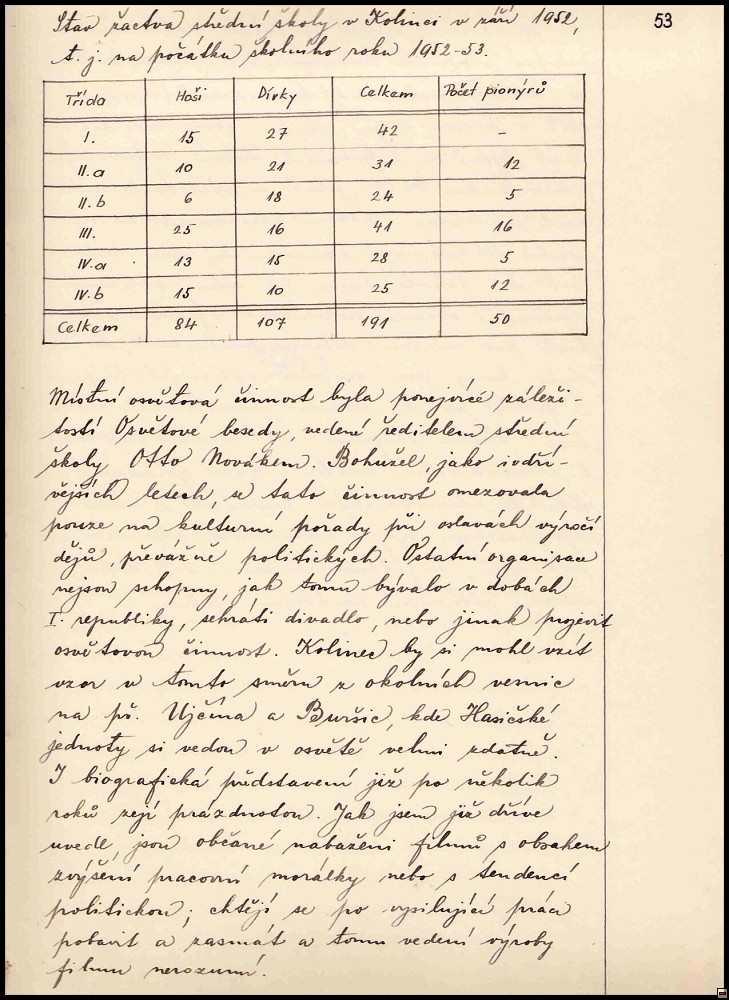 Stav žactva střední školy v Kolinci v září 1952,
53
t. j. na počátku školního roku 1952-53.
Třída Hoši Dívky Celkem Počet pionýrů
I. 15 27 42 -
II.a 10 21 31 12
II.b 6 18 24 5
III. 25 16 41 16
IV.a 13 15 28 5
IV.b 15 10 25 12
Celkem 84 107 191 50
Místní osvětová činnost byla ponejvíce záleži-
tostí Osvětové besedy, vedené ředitelem střední
školy Otto Novákem. Bohužel, jako i dří-
vějších letech, se tato činnost omezovala
pouze na kulturní pořady při oslavách výročí
dějů, převážně politických. Ostatní organisace
nejsou schopny, jak tomu bývalo v dobách
I. republiky, sehráti divadlo, nebo jinak projevit
osvětovou činnost. Kolinec by si mohl vzít
vzor v tomto směru z okolních vesnic
na př. Ujčína a Buršic, kde Hasičské
jednoty si vedou v osvětě velmi zdatně.
I biografická představení již po několik
roků zejí prázdnotou. Jak jsem již dříve
uvedl, jsou občané nabaženi filmů s obsahem
zvýšení pracovní morálky nebo s tendencí
politickou; chtějí se po vysilující práci
pobavit a zasmát a tomu vedení výroby
filmu nerozumí.